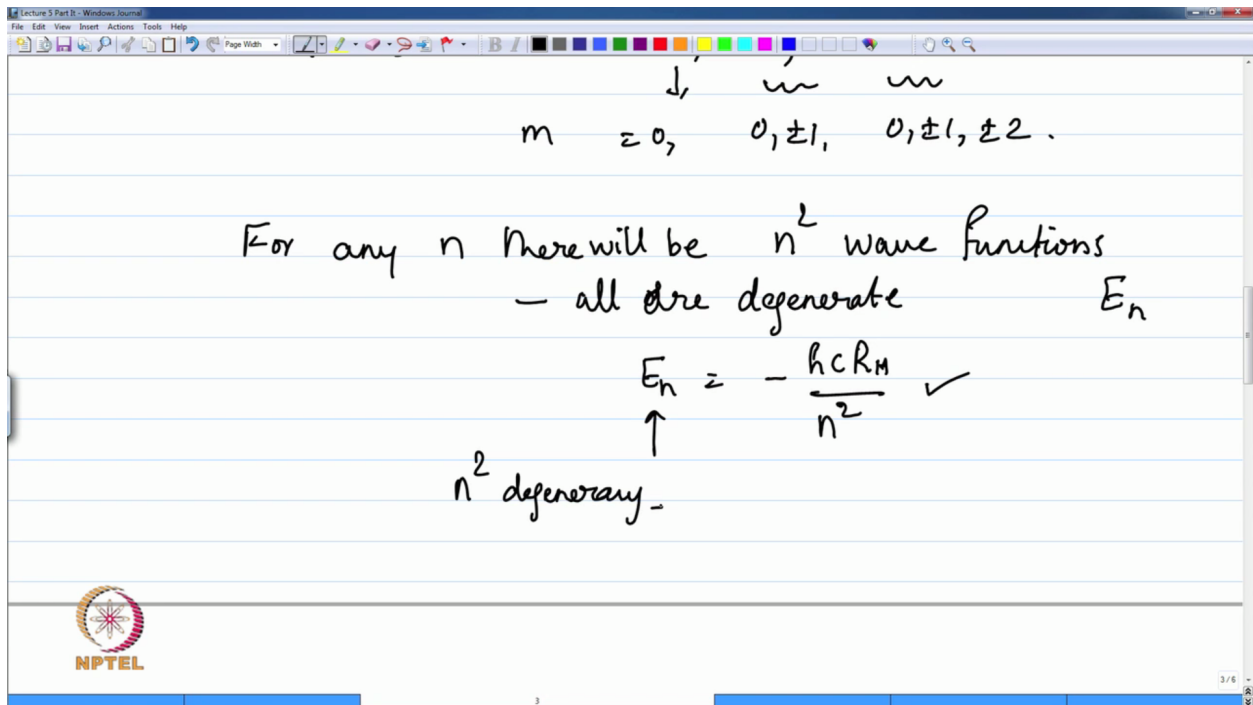 Lecture 5 Part II - Windows Journal
File Edit View Insert Actions Tools Help
Page Width B I
m = 0, 0, ±1, 0, ±1, ±2.
For any n there will be n² wave functions
— all are degenerate Eₙ
Eₙ = - hcR_H / n² ✓
↑
n² degeneracy -
NPTEL
3/6
3